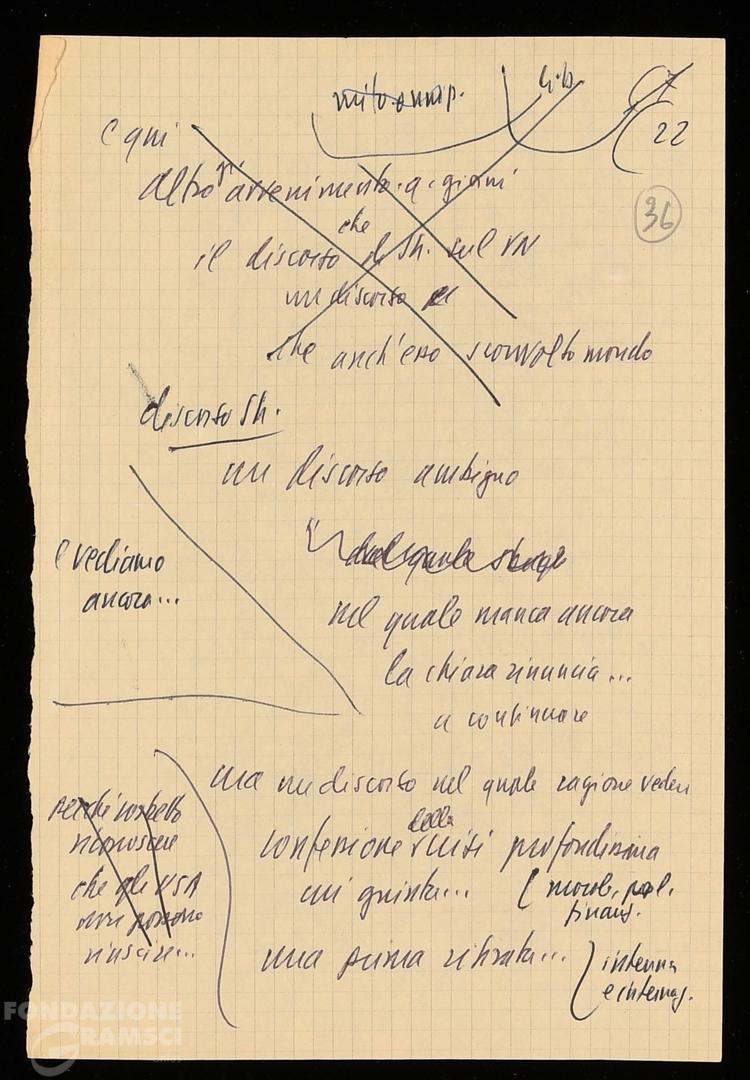 mito onnip.
22
36
altro avvenimento
che
il discorso di Sh. sul VN
un discorso
che anch'esso sconvolto mondo
discorso Sh.
un discorso ambiguo
e vediamo
ancora...
nel quale manca ancora
la chiara rinuncia...
a continuare
ma un discorso nel quale ragione vedere
confessione della crisi profondissima
cui giunta...
(moral. pol.
finanz.
perché
riconoscere
che gli USA
non possono
riuscire...
una prima ritirata...
interna
e internaz.
FONDAZIONE
GRAMSCI
ONLUS